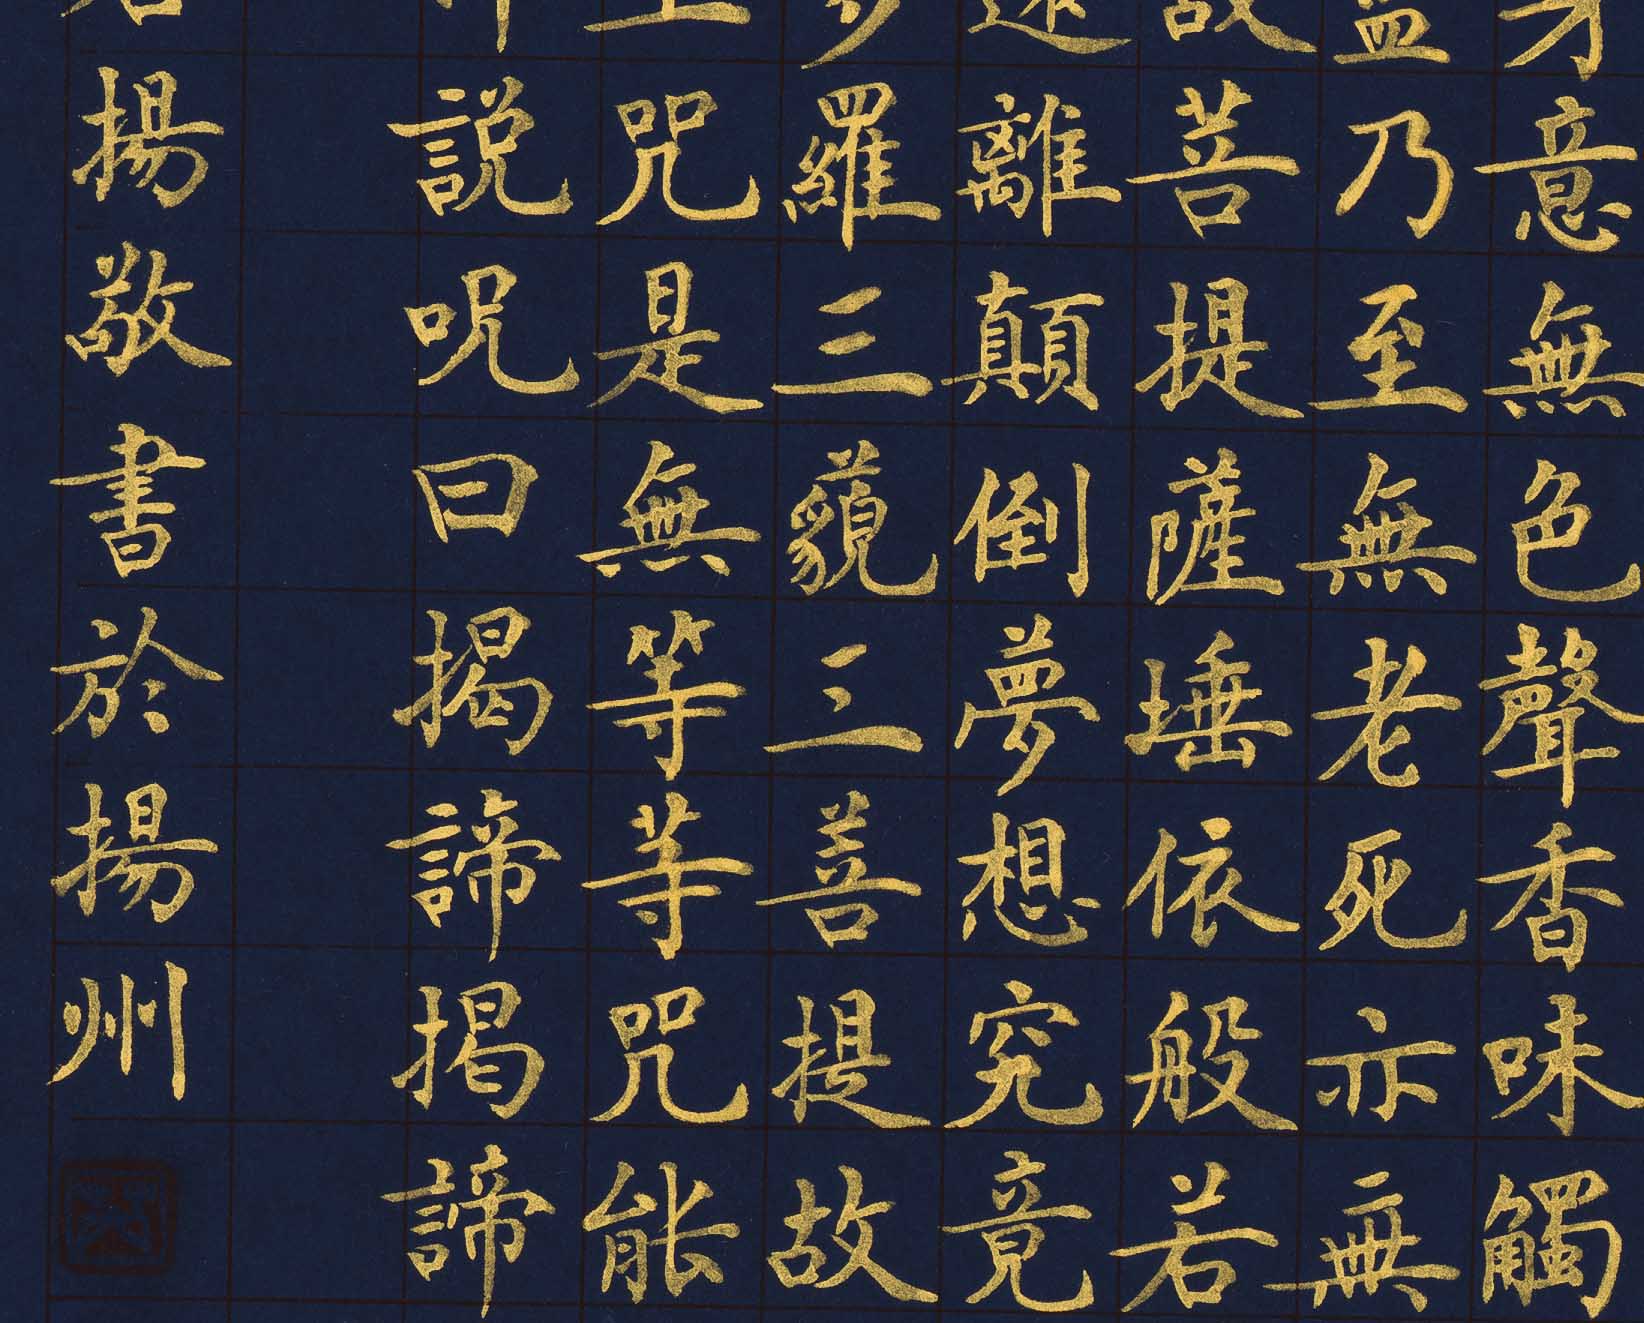 身意無色聲香味觸
盡乃至無老死亦無
故菩提薩埵依般若
遠離顛倒夢想究竟
多羅三藐三菩提故
上咒是無等等咒能
即說呪曰揭諦揭諦
揚敬書於揚州